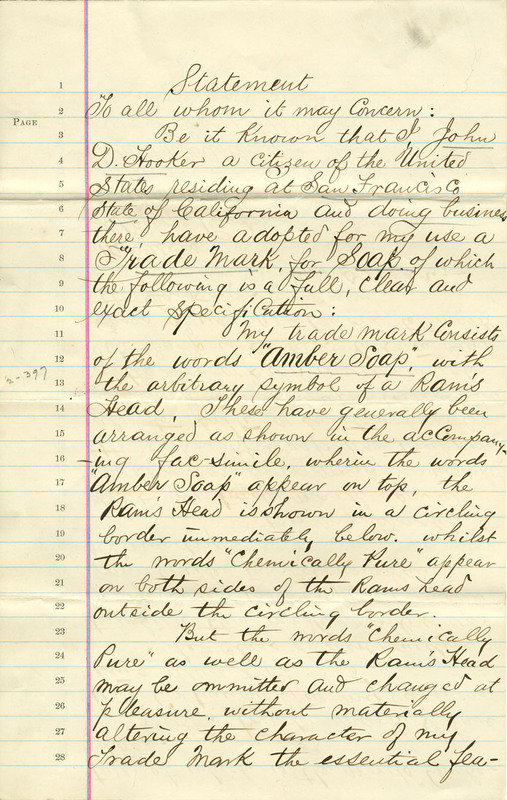 1 Statement
2 To all whom it may Concern:
PAGE
3 Be it Known that I John
4 D. Hooker a Citizen of the United
5 States residing at San Francisco
6 State of California and doing business
7 there have adopted for my use a
8 Trade Mark, for Soap. of which
9 the following is a full, clear and
10 exact Specification:
11 My trade mark Consists
12 of the words "Amber Soap", with
2-397
13 the arbitrary symbol of a Ram's
14 Head, These have generally been
15 arranged as shown in the accompany-
16 -ing fac-simile, wherin the words
17 "Amber Soap" appear on top, the
18 Ram's Head is shown in a circling
19 border immediately below. whilst
20 the words "Chemically Pure" appear
21 on both sides of the Rams head
22 outside the circling border.
23 But the words "Chemically
24 Pure" as well as the Ram's Head
25 may be ommitted and changed at
26 pleasure, without materially
27 altering the character of my
28 Trade Mark the essential fea-